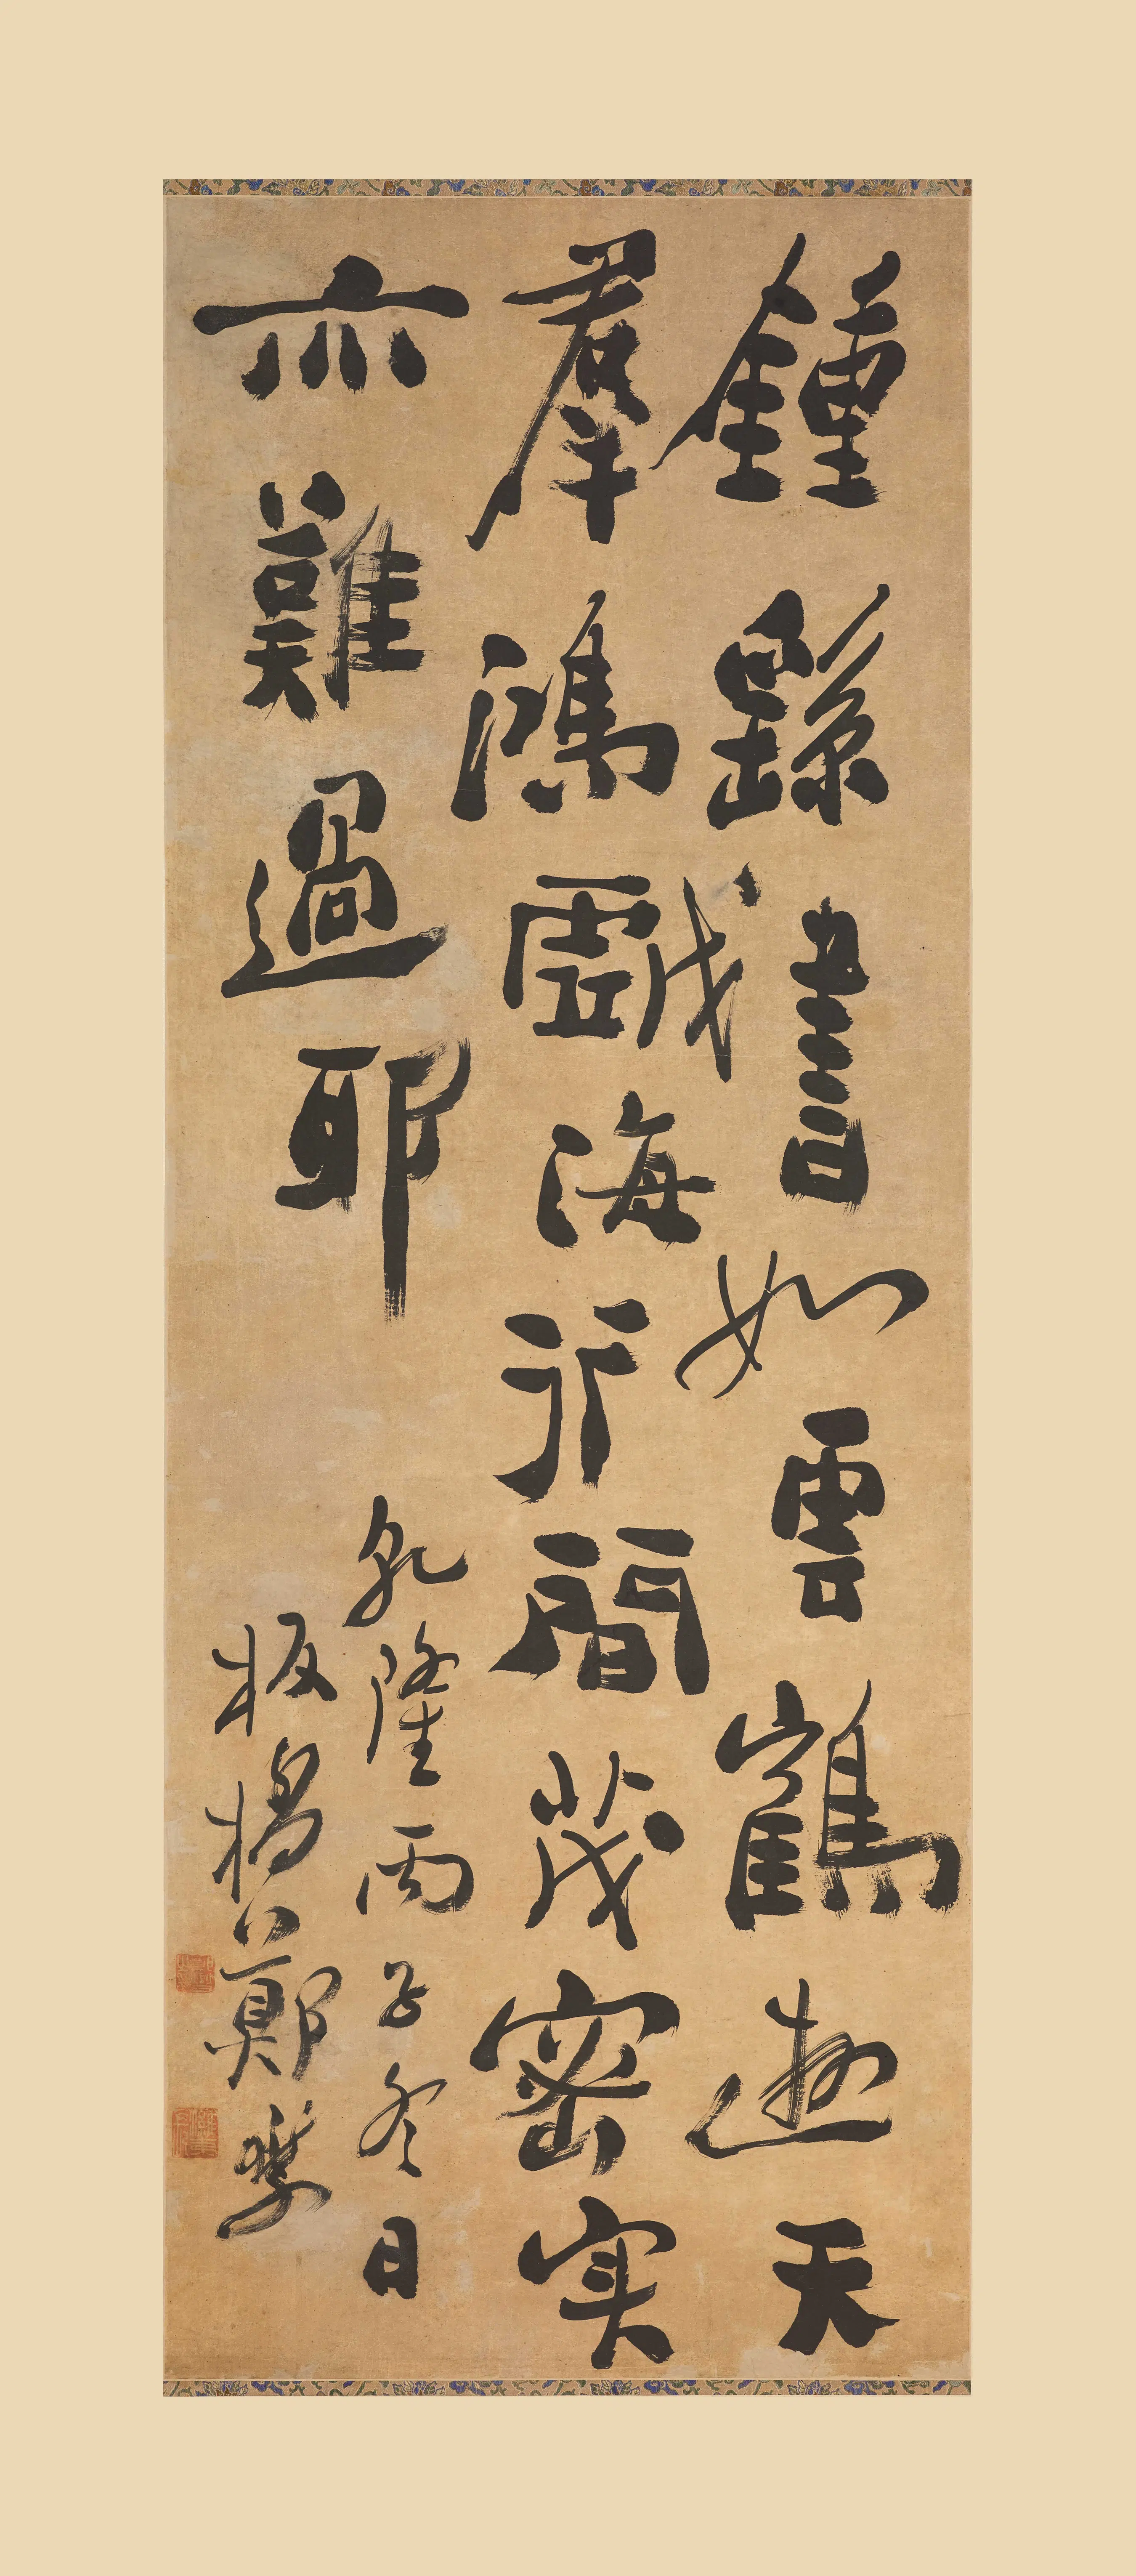 鍾繇書如雲鶴遊天
羣鴻戲海行間茂密实
亦難過耶
乾隆丙子冬日
板橋鄭燮